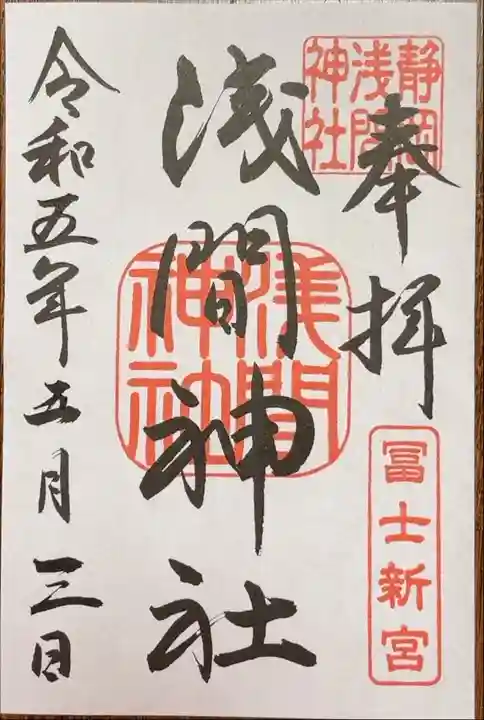 奉拝
静岡
浅間
神社
冨士新宮
浅間神社
浅間
神社
令和五年五月三日